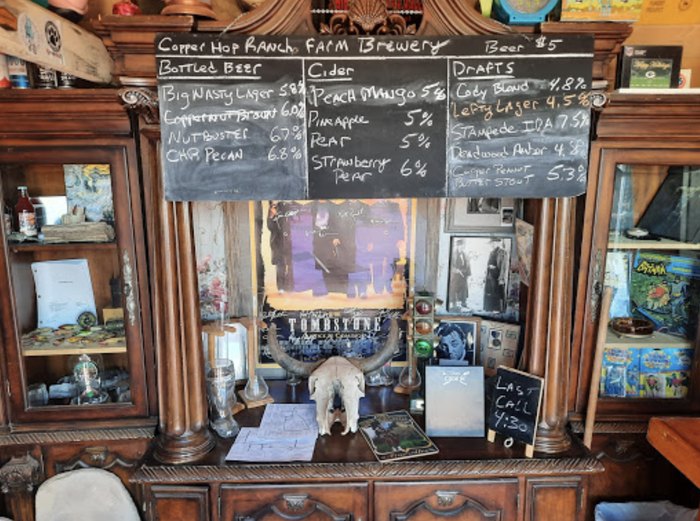 Copper Hop Ranch Farm Brewery Beer $5
Bottled Beer
Big Nasty Lager 5.8%
Coppernut Brown 6.0%
Nutbuster 6.7%
CHR Pecan 6.8%
Cider
Peach Mango 5%
Pineapple 5%
Pear 5%
Strawberry
Pear 6%
Drafts
Cody Blond 4.8%
Lefty Lager 4.5%
Stampede IPA 7.5%
Deadwood Amber 4.8
Copper Peanut
Butter Stout 5.3%
TOMBSTONE
BATMAN
gone
LAST
CALL
4:30